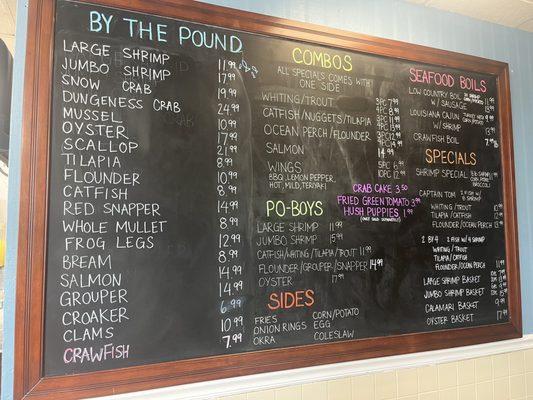 BY THE POUND
LARGE SHRIMP 11.99
JUMBO SHRIMP 17.99
SNOW CRAB 19.99
DUNGENESS CRAB 24.99
MUSSEL 8.99
OYSTER 10.99
SCALLOP 17.99
TILAPIA 8.99
FLOUNDER 10.99
CATFISH 8.99
RED SNAPPER 14.99
WHOLE MULLET 8.99
FROG LEGS 12.99
BREAM 8.99
SALMON 14.99
GROUPER 14.99
CROAKER 6.99
CLAMS 10.99
CRAWFISH 7.99
COMBOS
ALL SPECIALS COME WITH
ONE SIDE
WHITING/TROUT 3PC 7.99
CATFISH/NUGGETS/TILAPIA
OCEAN PERCH/FLOUNDER
SALMON 14.99
WINGS 5PC
BBQ, LEMON PEPPER, 10PC 12.99
HOT, MILD, TERIYAKI
CRAB CAKE 3.50
FRIED GREEN TOMATO 3.99
HUSH PUPPIES 1.99
PO-BOYS
LARGE SHRIMP 11.99
JUMBO SHRIMP 15.99
CATFISH/WHITING/TILAPIA/TROUT 11.99
FLOUNDER/GROUPER/SNAPPER 14.99
OYSTER 17.99
SIDES
FRIES CORN/POTATO
ONION RINGS EGG
OKRA COLESLAW
SEAFOOD BOILS
LOW COUNTRY BOIL 11.99
W/ SAUSAGE
LOUISIANA CAJUN
W/ SHRIMP 13.99
CRAWFISH BOIL 7.99
SPECIALS
SHRIMP SPECIAL
CAPTAIN TOM
WHITING/TROUT
TILAPIA/CATFISH 12.99
FLOUNDER/OCEAN PERCH 13.99
2 BY 4 2 FISH W/ 4 SHRIMP
WHITING/TROUT
TILAPIA/CATFISH
FLOUNDER/OCEAN PERCH 11.99
LARGE SHRIMP BASKET
JUMBO SHRIMP BASKET
CALAMARI BASKET 9.99
OYSTER BASKET 17.99